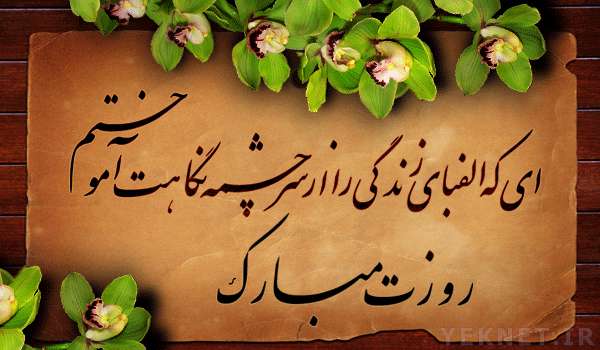 ای که الفبای زندگی را از سرچشمه نگاهت آموختم
روزت مبارک
YEKNET.IR